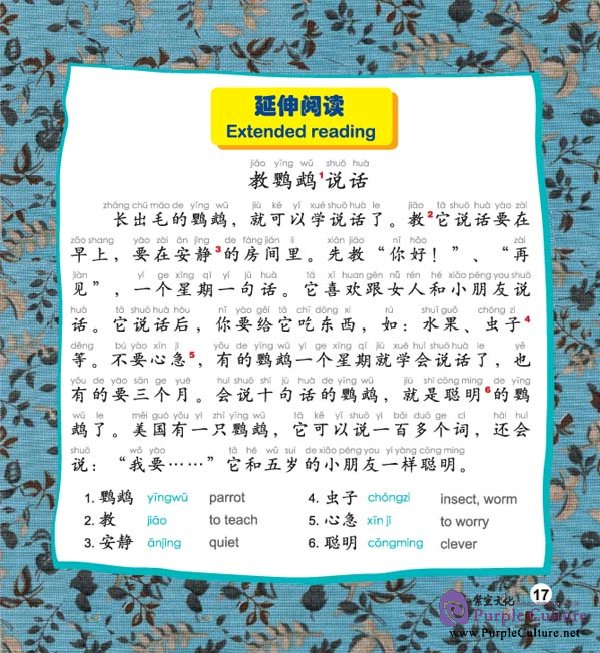 延伸阅读
Extended reading
jiāo yīng wǔ shuō huà
教鹦鹉1说话
zhǎng chū máo de yīng wǔ jiù kě yǐ xué shuō huà le jiāo tā shuō huà yào zài
长出毛的鹦鹉，就可以学说话了。教2它说话要在
zǎo shang yào zài ān jìng de fáng jiān li xiān jiāo nǐ hǎo zài
早上，要在安静3的房间里。先教“你好！”、“再
jiàn yí ge xīng qī yí jù huà tā xǐ huan gēn nǚ rén hé xiǎo péng you shuō
见”，一个星期一句话。它喜欢跟女人和小朋友说
huà tā shuō huà hòu nǐ yào gěi tā chī dōng xi rú shuǐ guǒ chóng zi
话。它说话后，你要给它吃东西，如：水果、虫子4
děng bú yào xīn jí yǒu de yīng wǔ yí ge xīng qī jiù xué huì shuō huà le yě
等。不要心急5，有的鹦鹉一个星期就学会说话了，也
yǒu de yào sān ge yuè huì shuō shí jù huà de yīng wǔ jiù shì cōng míng de yīng
有的要三个月。会说十句话的鹦鹉，就是聪明6的鹦
wǔ le měi guó yǒu yì zhī yīng wǔ tā kě yǐ shuō yì bǎi duō ge cí hái huì
鹉了。美国有一只鹦鹉，它可以说一百多个词，还会
shuō wǒ yào tā hé wǔ suì de xiǎo péng you yí yàng cōng míng
说：“我要……”它和五岁的小朋友一样聪明。
1. 鹦鹉 yīngwǔ parrot
2. 教 jiāo to teach
3. 安静 ānjìng quiet
4. 虫子 chóngzi insect, worm
5. 心急 xīn jí to worry
6. 聪明 cōngming clever
17
紫宝文化
Purple Culture
www.PurpleCulture.net